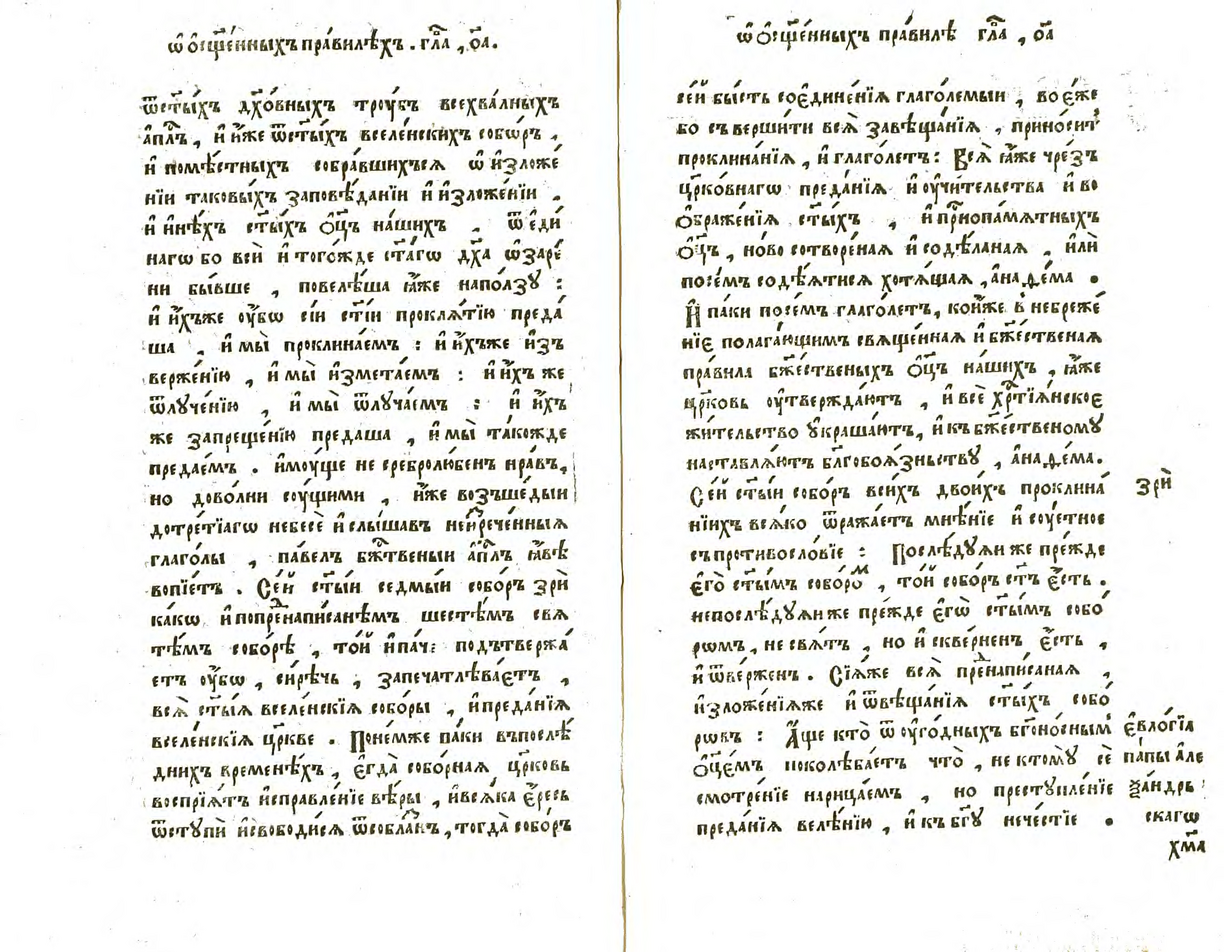 ѡ҆ ѻ҆сщ҃е́нныхъ пра́вилѣхъ . гла҃ , ѻ҃а.
ѿст҃ы́хъ дх҃о́вныхъ троу́бъ всехва́лныхъ
а҆пл҃ъ , и҆ и҆́же ѿст҃ы́хъ вселе́нскихъ собѡ́ръ ,
и҆ помѣ́стныхъ собра́вшихъся ѡ҆ и҆зложе́
нїи таковы́хъ заповѣ́данїи и҆ и҆зложе́нїи ,
и҆ и҆нѣ́хъ ст҃ы́хъ ѻ҆ц҃ъ на́шихъ , ѿ е҆ди́
нагѡ бо всѝ и҆ того́жде ст҃а́гѡ дх҃а ѡ҆заре́
ни бы́вше , повелѣ́ша ꙗ҆́же напо́лзꙋ :
и҆ и҆́хъже оу҆́бѡ сі́и ст҃і́и прокля́тїю преда́
ша , и҆ мы̀ проклина́емъ : и҆ и҆́хъже и҆зъ
верже́нїю , и҆ мы̀ и҆змета́емъ : и҆ и҆́хъ же
ѿлꙋче́нїю , и҆ мы̀ ѿлꙋча́емъ : и҆ и҆́хъ
же запреще́нїю предаша , и҆ мы̀ та́кожде
предае́мъ . и҆мꙋ́ще не сребролю́бенъ нра́въ,
но дово́лни сꙋ́щими , и҆́же возъше́дыи
дотре́тїагѡ небесѐ и҆ слы́шавъ неи҆рече́нныѧ
глаго́лы , па́велъ бж҃твеныи а҆пл҃ъ ꙗ҆́вѣ
вопїе́тъ . Се́й ст҃ы́и седмы́и собо́ръ зрѝ
ка́кѡ и҆ попрⷣенаписа́нѣмъ шесте́мъ свѧ
тѣ́мъ собо́рѣ , то́й и҆ па́че подътвержа́
етъ оу҆́бѡ , си́рѣчь , запечатлѣва́етъ ,
всѧ̀ ст҃ы́ѧ вселе́нскїѧ собо́ры , и҆ преда́нїѧ
вселе́нскїѧ цр҃кве . Поне́мже па́ки въпослѣ́
днихъ времене́хъ , е҆гда̀ собо́рная цр҃ковь
воспрїя́тъ и҆справле́нїе вѣ́ры , и҆ вся́ка є҆́ресь
ѿстꙋпѝ и҆ свободи́ся ѿсобла́знъ , тогда̀ собо́ръ
ѡ҆ ѻ҆сщ҃е́нныхъ пра́вилѣ гла҃ , ѻ҃а
се́й бы́сть сое҆дине́нїѧ глаго́лемыи , во є҆́же
бо съвершити всѧ̀ завѣща́нїѧ , прино́ситъ
проклина́нїѧ , и҆ глаго́летъ : Всѧ̀ ꙗ҆́же чре́зъ
цр҃ко́внагѡ преда́нїѧ и҆ оу҆чи́тельства и҆ во
ѻ҆браже́нїѧ ст҃ы́хъ , и҆ приⷭ҇нопа́мятныхъ
ѻ҆ц҃ъ , но́во сотворе́ная и҆ содѣ́ланая , и҆лѝ
посе́мъ содѣ́ятися хотя́щая , а҆на́ѳема .
И҆ паки посе́мъ глаго́летъ, кои҆́же в небреже́
нїе полага́ющимъ свяще́нная и҆ бж҃ественая
пра́вила бж҃е́ственыхъ ѻ҆ц҃ъ на́шихъ , ꙗ҆́же
цр҃ковь оу҆твержда́ютъ , и҆ всѐ хрⷭ҇тїя́нское
жи́тельство ᲂу҆краша́ютъ, и҆ къ бж҃е́ственомꙋ
наставля́ютъ бл҃гобоя́зньствꙋ , а҆на́ѳема.
Се́й ст҃ы́и собо́ръ все́хъ двои́хъ проклина́
нїихъ вся́ко ѿража́етъ мнѣ́нїе и҆ сꙋ́етное
съпротивосло́вїе : Послѣ́дꙋѧи же пре́жде
є҆го̀ ст҃ы́мъ собо́роⷨ , то́й собо́ръ ст҃ъ є҆́сть .
непослѣ́дꙋѧи же пре́жде є҆го̀ ст҃ы́мъ собо́
рѡмъ, не свя́тъ , но и҆ скве́рненъ є҆́сть ,
и҆ ѿве́рженъ . Сїѧ́же всѧ̀ прⷣенапи́саная ,
и҆зложе́нїѧже и҆ ѿвѣща́нїѧ ст҃ы́хъ собо́
рѡвъ : А҆́ще кто̀ ѿ оу҆го́дныхъ бг҃оно́сныⷨ
ѻ҆ц҃е́мъ поколѣ́баетъ что̀ , не ктомꙋ̀ сѐ
смотре́нїе нарица́емъ , но престꙋпле́нїе
преда́нїѧ веле́нїю , и҆ къ бг҃ꙋ нече́стїе .
зрѝ
є҆вло́гїа
па́пы а҆ле
ѯа́ндрь
скагѡ
хм҃а